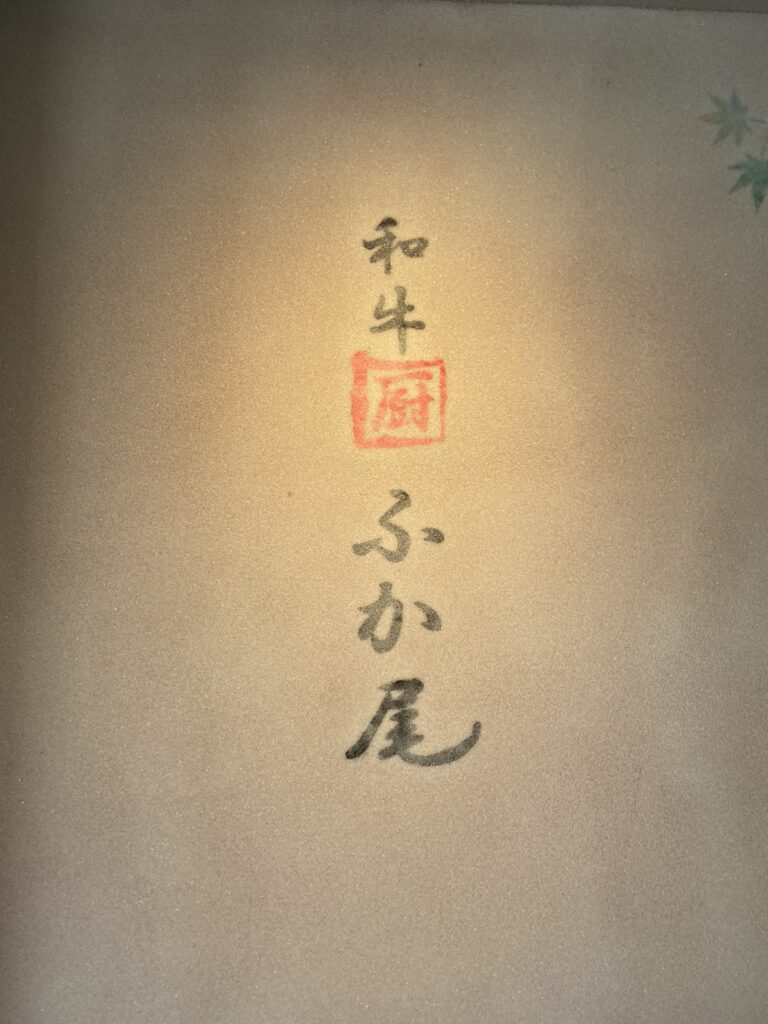 和牛厨ふか尾